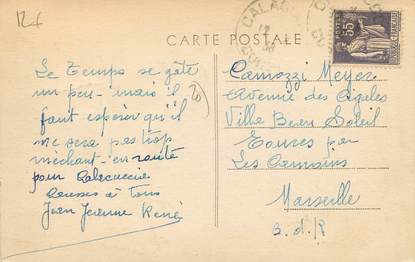 12f
CALA
CARTE POSTALE
55c
Le Temps se gâte
un peu - mais il
faut espérer qu'il
ne sera pas trop
méchant - en route
pour Calacuccia
Bonses à tous
Jean Jeanne René
Camozzi Meyer
Avenue des Cigales
Villa Beau Soleil
par
Les Camoins
Marseille
B.d.R